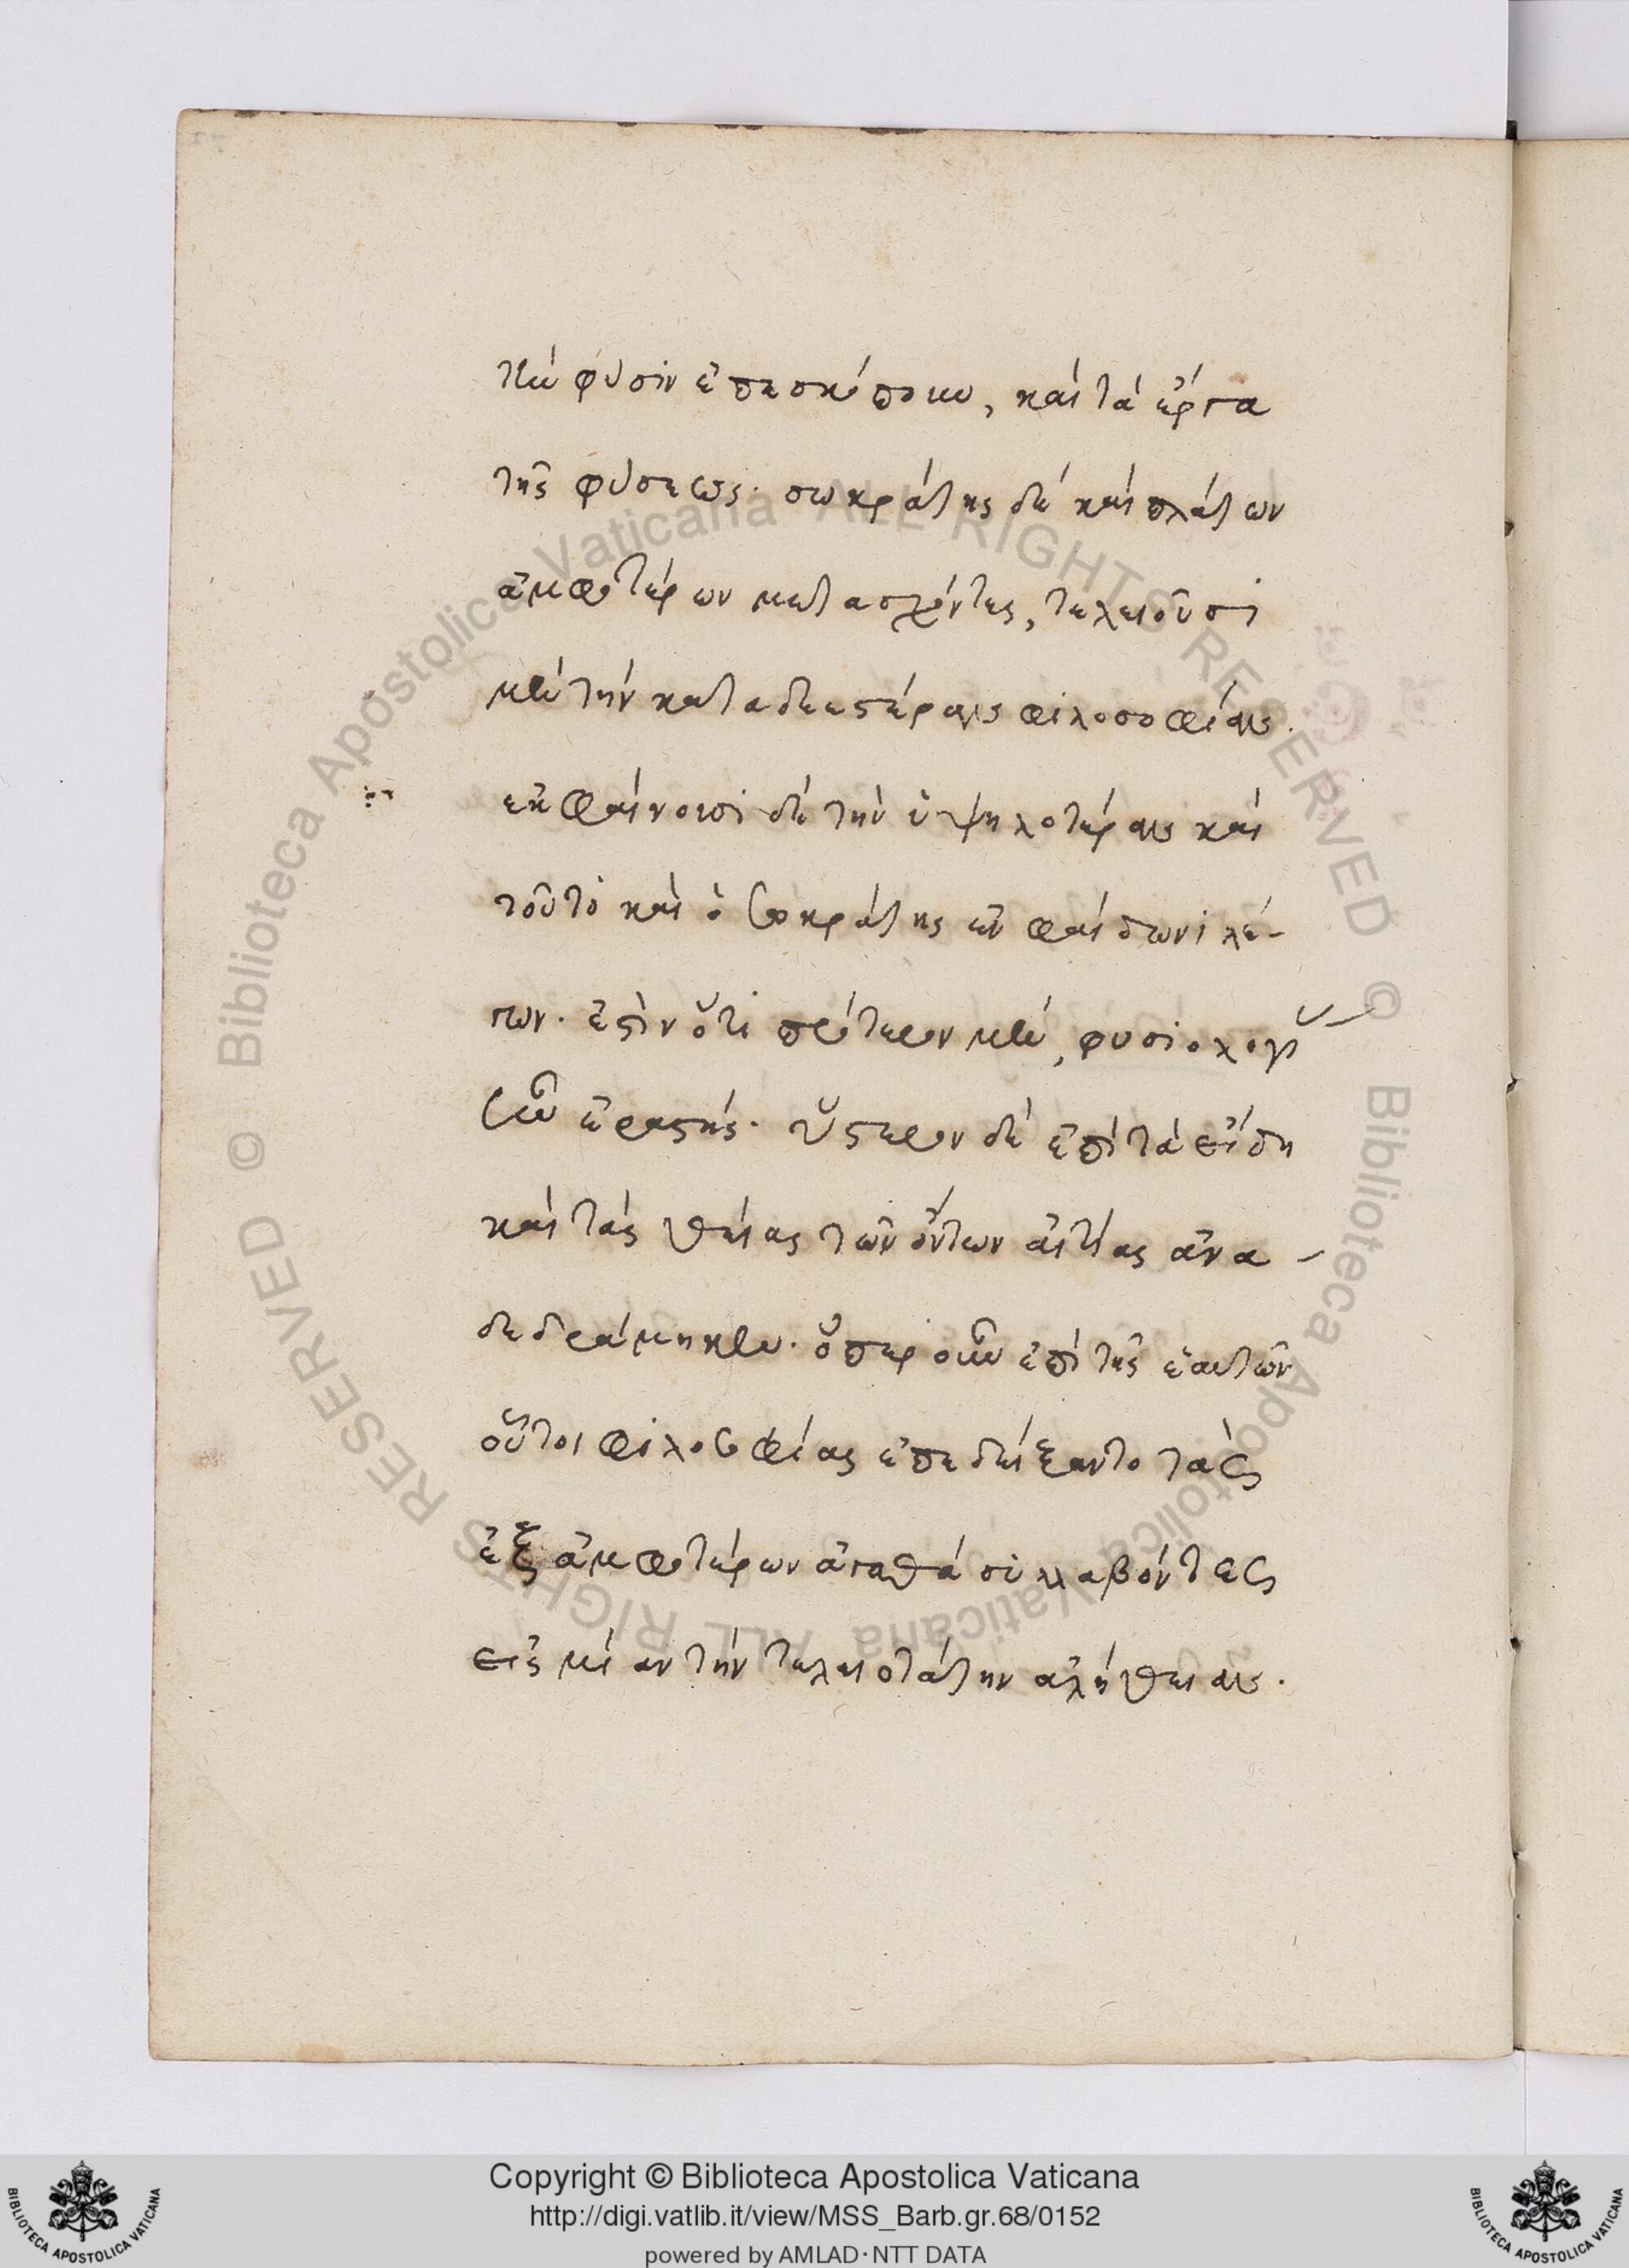 τὴν φύσιν ἐπεσκόπουν, καὶ τὰ ἔργα
τῆς φύσεως· σωκράτης δὲ καὶ πλάτων
ἀμφοτέρων μετασχόντες, τελειοῦσι
μὲν τὴν καταδεεστέραν φιλοσοφίαν.
ἐκφαίνουσι δὲ τὴν ὑψηλοτέραν καὶ
τοῦτο καὶ ὁ σωκράτης ἐν φαίδωνι λέ-
γων. ἐστὶν ὅτι πρότερον μὲν, φυσιολογί
ἐραστής. ὕστερον δὲ ἐπὶ τὰ εἴδη
καὶ τὰς θείας τῶν ὄντων αἰτίας ἀνα-
δεδράμηκεν. ὅπερ οὖν ἐπὶ τῆς ἑαυτῶν
οὗτοι φιλοσοφίας ἐπεδείξαντο τὰς
ἐξ ἀμφοτέρων ἀγαθὰ συλλαβόντες
εἰς μίαν τὴν τελειοτάτην ἀλήθειαν.
Copyright © Biblioteca Apostolica Vaticana
http://digi.vatlib.it/view/MSS_Barb.gr.68/0152
powered by AMLAD·NTT DATA
BIBLIOTECA APOSTOLICA VATICANA
BIBLIOTECA APOSTOLICA VATICANA
© Biblioteca Apostolica Vaticana ALL RIGHTS RESERVED
© Biblioteca Apostolica Vaticana ALL RIGHTS RESERVED